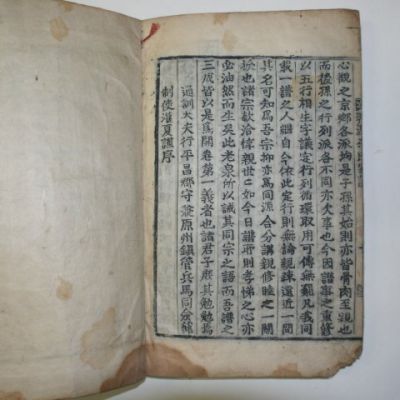 心觀之京鄕各派均是子孫其始則亦皆骨肉至親也
而後孫之行列派各不同亦欠事也今因譜事之重修
以五行相生字議定行列循環取用可傳無窮凡我同
載一譜之人繼自今依此定行則無論親疎遠近一聞
其名可知爲吾宗抑亦爲同派合分講親修睦之一關
捩也譜宗歡洽
親世二
如今日譜所則孝悌之心亦
油然而生矣此老泉所以誡其同宗之語而吾譜
三成皆以是爲開卷第一義者也諸君子庶其勉勉焉
通訓大夫行平昌郡守
原州鎭管兵馬同
制使
夏
謹序